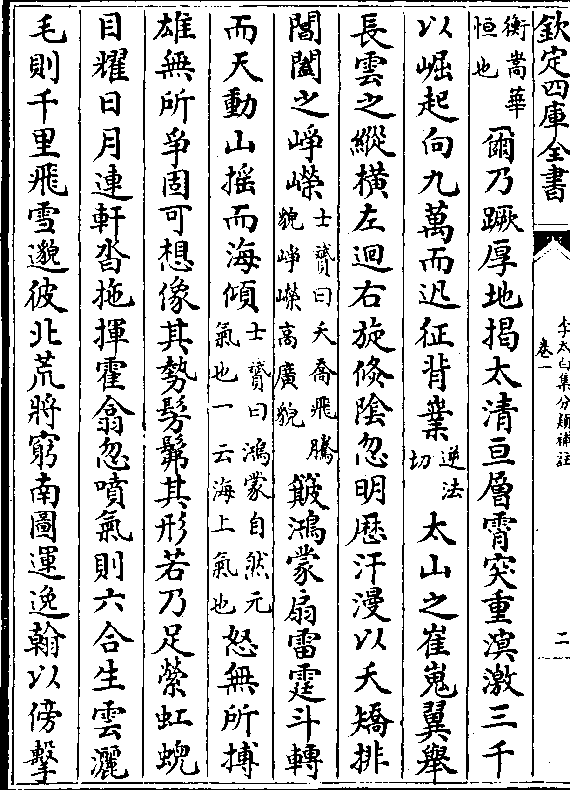 欽定四庫全書
李太白集分類補註
卷一
二
衡嵩華
恒也
爾乃蹶厚地揭太清亘層霄突重溟激三千
以崛起向九萬而迅征背嶪
逆法
切
太山之崔嵬翼舉
長雲之縱橫左迴右旋倐陰忽明歷汗漫以夭矯排
閶闔之崢嶸
士贇曰夭喬飛騰
貌崢嶸高廣貌
簸鴻蒙扇雷霆斗轉
而天動山搖而海傾
士贇曰鴻蒙自然元
氣也一云海上氣也
怒無所搏
雄無所爭固可想像其勢髣髴其形若乃足縈虹蜺
目耀日月連軒沓拖揮霍翕忽噴氣則六合生雲灑
毛則千里飛雪邈彼北荒將窮南圖運逸翰以傍擊